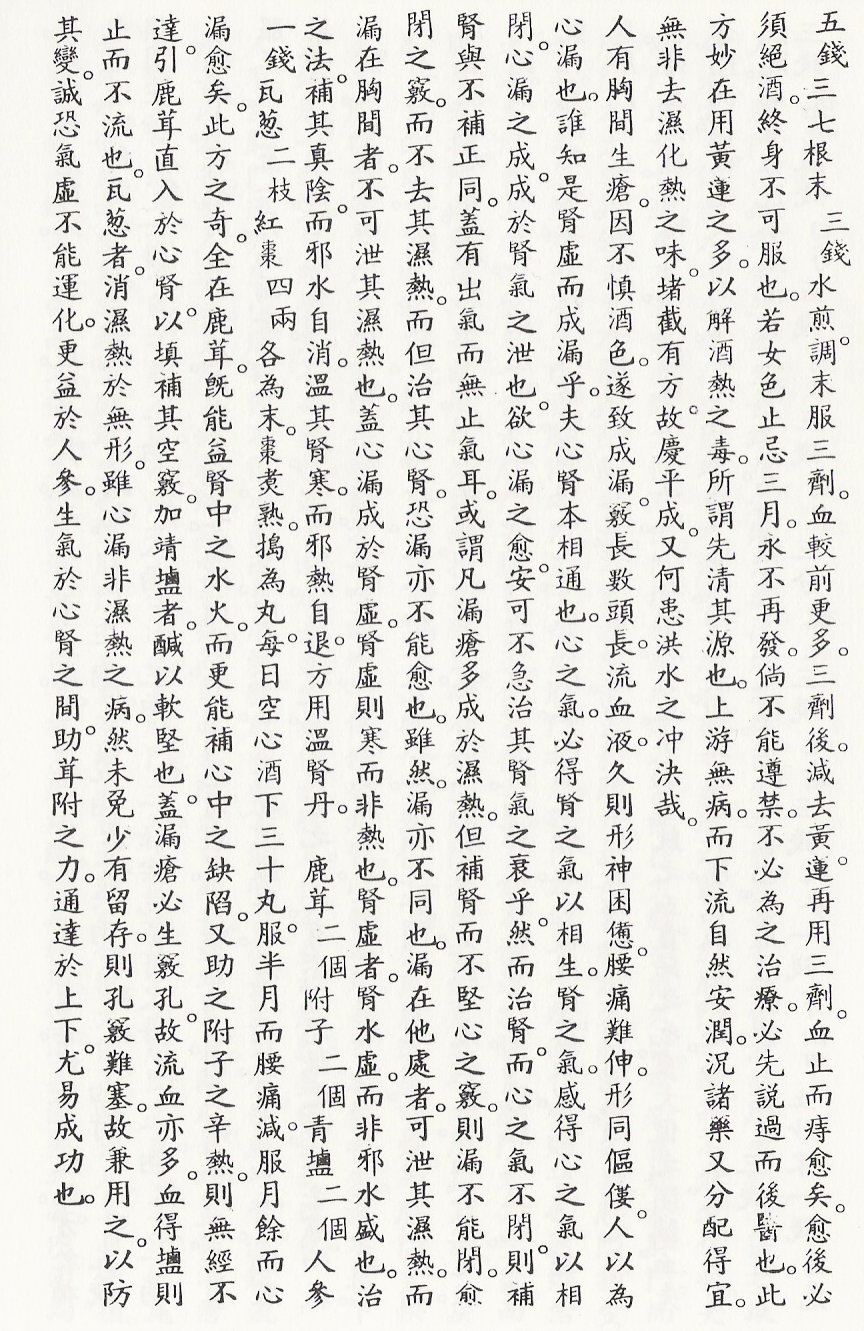 五錢三七根末　三錢水煎。調末服三劑。血較前更多。三劑後。減去黃連。再用三劑。血止而痔愈矣。愈後必
須絕酒。終身不可服也。若女色止忌三月。永不再發。倘不能遵禁。不必為之治療。必先説過而後醫也。此
方妙在用黃連之多。以解酒熱之毒。所謂先清其源也。上游無病。而下流自然安潤。況諸藥又分配得宜。
無非去濕化熱之味。堵截有方。故慶平成。又何患洪水之冲決哉。
人有胸間生瘡。因不慎酒色。遂致成漏。竅長數頭。長流血液。久則形神困憊。腰痛難伸。形同傴僂。人以為
心漏也。誰知是腎虛而成漏乎。夫心腎本相通也。心之氣。必得腎之氣以相生。腎之氣。感得心之氣以相
閉。心漏之成。成於腎氣之泄也。欲心漏之愈。安可不急治其腎氣之衰乎。然而治腎。而心之氣不閉。則補
腎與不補正同。蓋有出氣而無止氣耳。或謂凡漏瘡多成於濕熱。但補腎而不堅心之竅。則漏不能閉。愈
閉之竅。而不去其濕熱。而但治其心腎。恐漏亦不能愈也。雖然。漏亦不同也。漏在他處者。可泄其濕熱。而
漏在胸間者。不可泄其濕熱也。蓋心漏成於腎虛。腎虛則寒而非熱也。腎虛者。腎水虛。而非邪水盛也。治
之法。補其真陰。而邪水自消。溫其腎寒。而邪熱自退。方用溫腎丹。　鹿茸二個附子　二個青壚二個人參
一錢瓦葱二枝紅棗四兩各為末。棗煑熟。搗為丸。每日空心酒下三十丸。服半月而腰痛減。服月餘而心
漏愈矣。此方之奇。全在鹿茸。旣能益腎中之水火。而更能補心中之缺陷。又助之附子之辛熱。則無經不
達。引鹿茸直入於心腎。以填補其空竅。加靖壚者。鹹以軟堅也。蓋漏瘡必生竅孔。故流血亦多。血得壚則
止而不流也。瓦葱者。消濕熱於無形。雖心漏非濕熱之病。然未免少有留存。則孔竅難塞。故兼用之。以防
其變。誠恐氣虛不能運化。更益於人參。生氣於心腎之間。助茸附之力。通達於上下。尤易成功也。